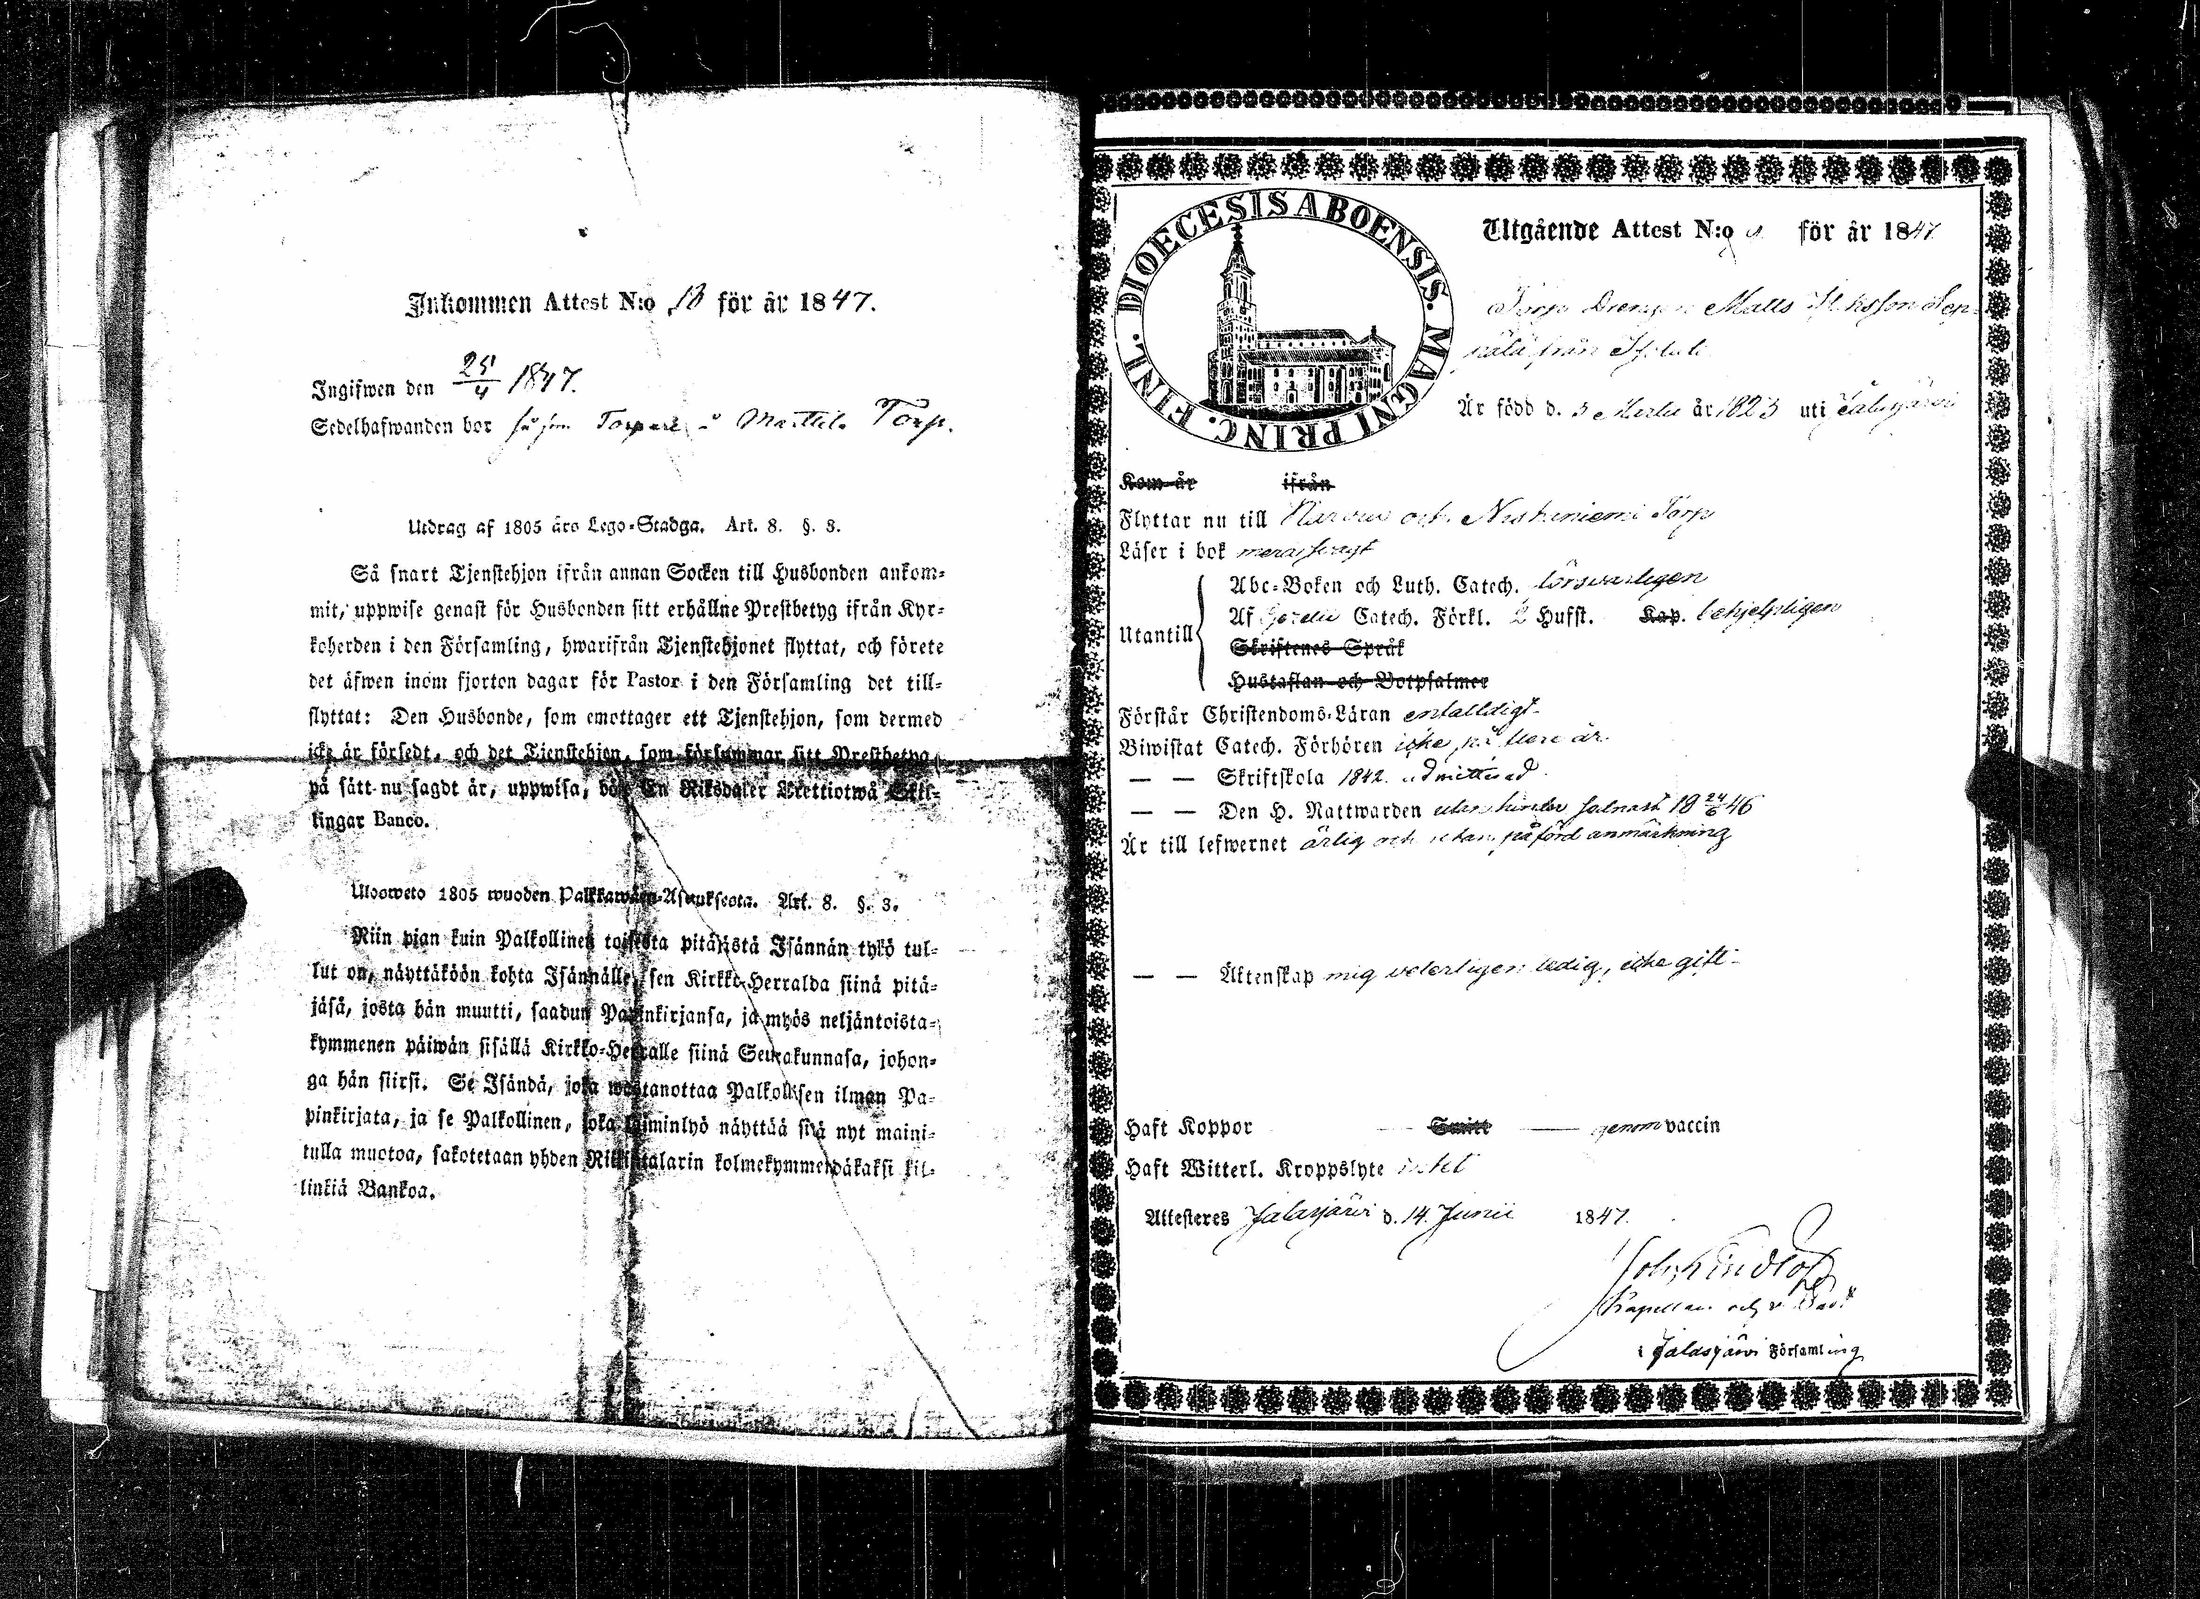 Inkommen Attest N:o 13 för år 1847.
Ingifwen den 25/4 1847.
Sedelhafwanden bor som Torpare å Marttila Torp.
Utdrag af 1805 års Lego-Stadga. Art. 8. §. 3.
Så snart Tjenstehjon ifrån annan Socken till Husbonden ankom-
mit, uppwise genast för Husbonden sitt erhållne Prestbetyg ifrån Kyr-
koherden i den Församling, hwarifrån Tjenstehjonet flyttat, och förete
det äfwen inom fjorton dagar för Pastor i den Församling det till-
flyttat: Den Husbonde, som emottager ett Tjenstehjon, som dermed
icke är försedt, och det Tjenstehjon, som försummar sitt Prestbetyg
på sätt nu sagdt är, uppwisa, böte En Riksdaler Trettiotwå Skil-
lingar Banco.
Ulosweto 1805 wuoden Palkkawäen-Asetuksesta. Art. 8. §. 3.
Niin pian kuin Palkollinen toisesta pitäjästä Isännän tykö tul-
lut on, näyttäköön kohta Isännälle sen Kirkko-Herralda siinä pitä-
jäsä, josta hän muutti, saadun Papinkirjansa, ja myös neljäntoista-
kymmenen päiwän sisällä Kirkko-Herralle siinä Seurakunnasa, johon-
ga hän siirsi. Se Isändä, joka wastanottaa Palkollisen ilman Pa-
pinkirjata, ja se Palkollinen, joka laiminlyö näyttää sitä nyt maini-
tulla muotoa, sakotetaan yhden Riikintalarin kolmekymmendäkaksi kil-
linkiä Bankoa.
DIOECESIS ABOENSIS. MAGNI PRINC. FINL.
Utgående Attest N:o för år 1847
Torp Drengen Matts Sep-
pälä från
Är född d. 3 Martii år 1823 uti Jalasjärvi
Kom år ifrån
Flyttar nu till och Niskaniemi Torp
Läser i bok
Utantill
Abc-Boken och Luth. Catech. försvarligen
Af Catech. Förkl. 2 Hufst. Kap. behjelpligen
Skriftenes Språk
Hustaflan och Botpsalmer
Förstår Christendoms-Läran enfalldigt
Biwistat Catech. Förhören icke på flere år
— — Skriftskola 1842. admitterad
— — Den H. Nattwarden utan hinder sednast 18 24/6 46
Är till lefwernet ärlig och utan påförd anmärkning
— — Äktenskap mig veterligen ledig, icke gift
Haft Koppor Smitt genom vaccin
Haft Witterl. Kroppslyte intet
Attesteres Jalasjärvi d. 14. Junii 1847.
Kapellan och v.
i Jalasjärvi Församling